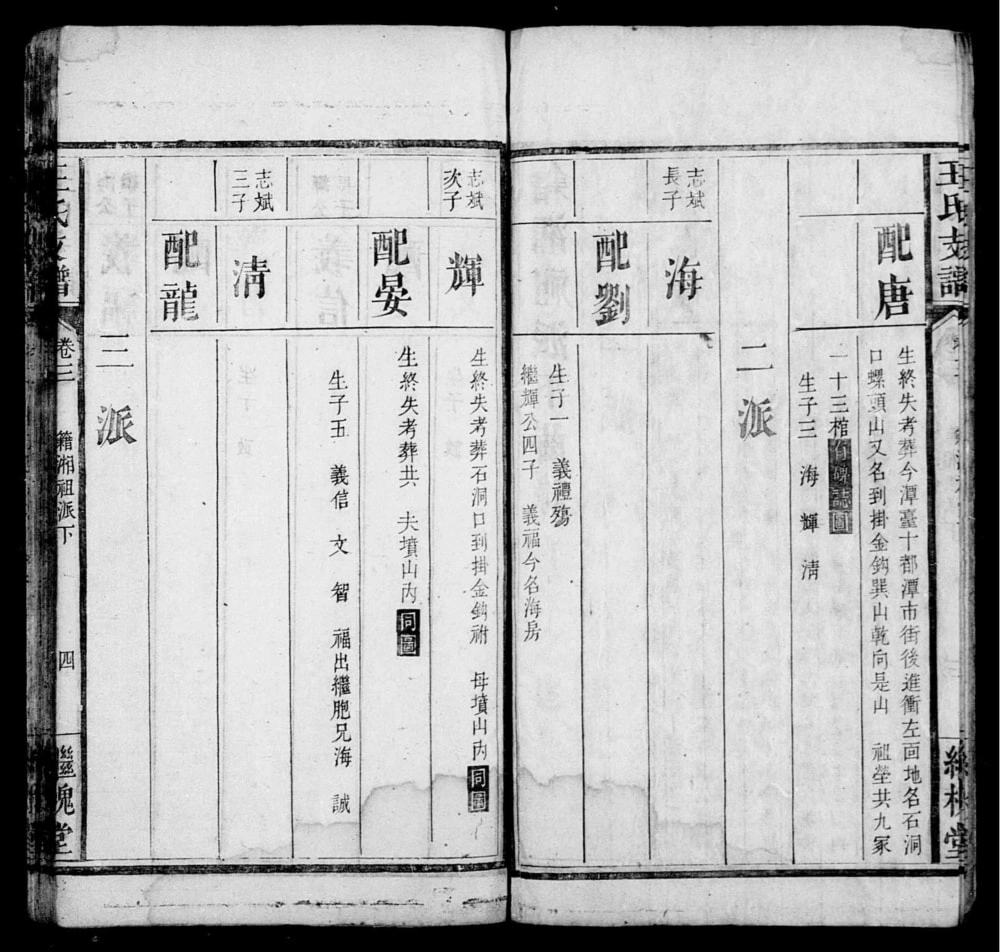 王氏支譜
配唐
生終失考葬今潭臺十都潭市街後進衝左面地名石洞
口螺頭山又名到掛金鈎巽山乾向是山 祖塋共九冢
一十三棺有碑誌圖
生子三 海 輝 淸
二派
志斌
長子
海
配劉
生子一 義禮殤
繼輝公四子 義福今名海房
志斌
次子
輝
生終失考葬石洞口到掛金鈎祔 母墳山內同圖
配晏
生終失考葬共 夫墳山內同圖
生子五 義信 文 智 福出繼胞兄海 誠
志斌
三子
淸
配龍
三派
王氏支譜
卷三
籍湘祖派下
四
繼槐堂